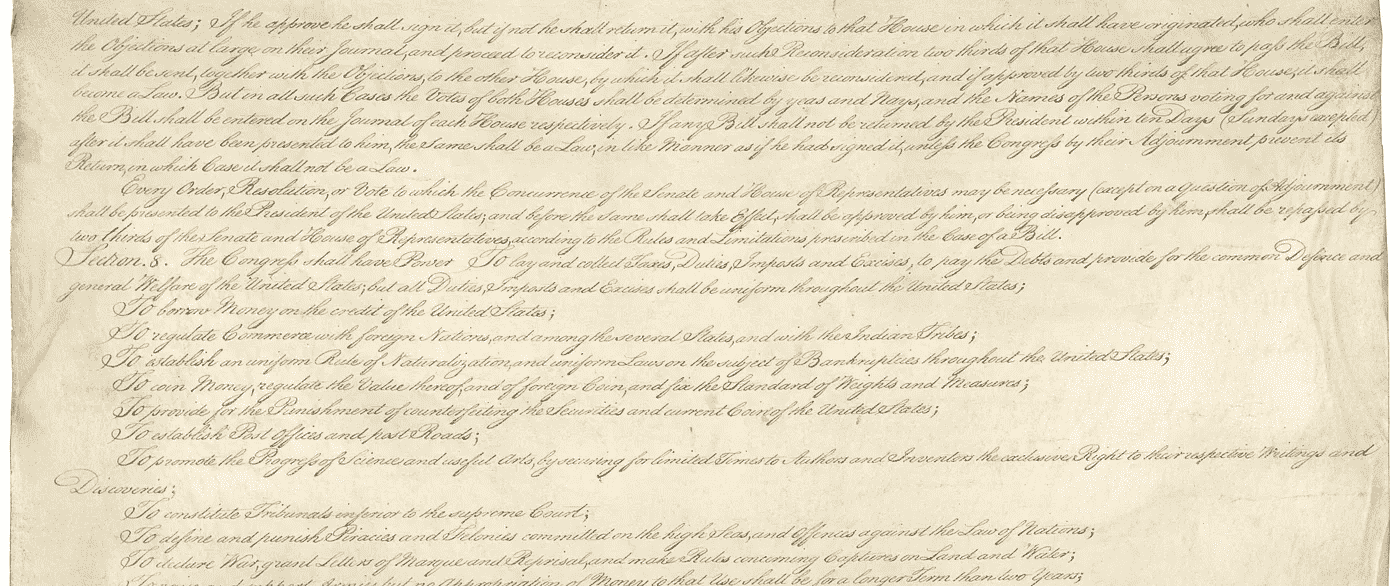 United States; If he approve he shall sign it, but if not he shall return it, with his Objections to that House in which it shall have originated, who shall enter
the Objections at large on their Journal, and proceed to reconsider it. If after such Reconsideration two thirds of that House shall agree to pass the Bill,
it shall be sent, together with the Objections, to the other House, by which it shall likewise be reconsidered, and if approved by two thirds of that House, it shall
become a Law. But in all such Cases the Votes of both Houses shall be determined by yeas and Nays, and the Names of the Persons voting for and against
the Bill shall be entered on the Journal of each House respectively. If any Bill shall not be returned by the President within ten Days (Sundays excepted)
after it shall have been presented to him, the Same shall be a Law, in like Manner as if he had signed it, unless the Congress by their Adjournment prevent its
Return, in which Case it shall not be a Law.
Every Order, Resolution, or Vote to which the Concurrence of the Senate and House of Representatives may be necessary (except on a question of Adjournment)
shall be presented to the President of the United States; and before the Same shall take Effect, shall be approved by him, or being disapproved by him, shall be repassed by
two thirds of the Senate and House of Representatives, according to the Rules and Limitations prescribed in the Case of a Bill.
Section. 8. The Congress shall have Power To lay and collect Taxes, Duties, Imposts and Excises, to pay the Debts and provide for the common Defence and
general Welfare of the United States; but all Duties, Imposts and Excises shall be uniform throughout the United States;
To borrow Money on the credit of the United States;
To regulate Commerce with foreign Nations, and among the several States, and with the Indian Tribes;
To establish an uniform Rule of Naturalization, and uniform Laws on the subject of Bankruptcies throughout the United States;
To coin Money, regulate the Value thereof, and of foreign Coin, and fix the Standard of Weights and Measures;
To provide for the Punishment of counterfeiting the Securities and current Coin of the United States;
To establish Post Offices and post Roads;
To promote the Progress of Science and useful Arts, by securing for limited Times to Authors and Inventors the exclusive Right to their respective Writings and
Discoveries;
To constitute Tribunals inferior to the supreme Court;
To define and punish Piracies and Felonies committed on the high Seas, and Offences against the Law of Nations;
To declare War, grant Letters of Marque and Reprisal, and make Rules concerning Captures on Land and Water;
To raise and support Armies, but no Appropriation of Money to that Use shall be for a longer Term than two Years;